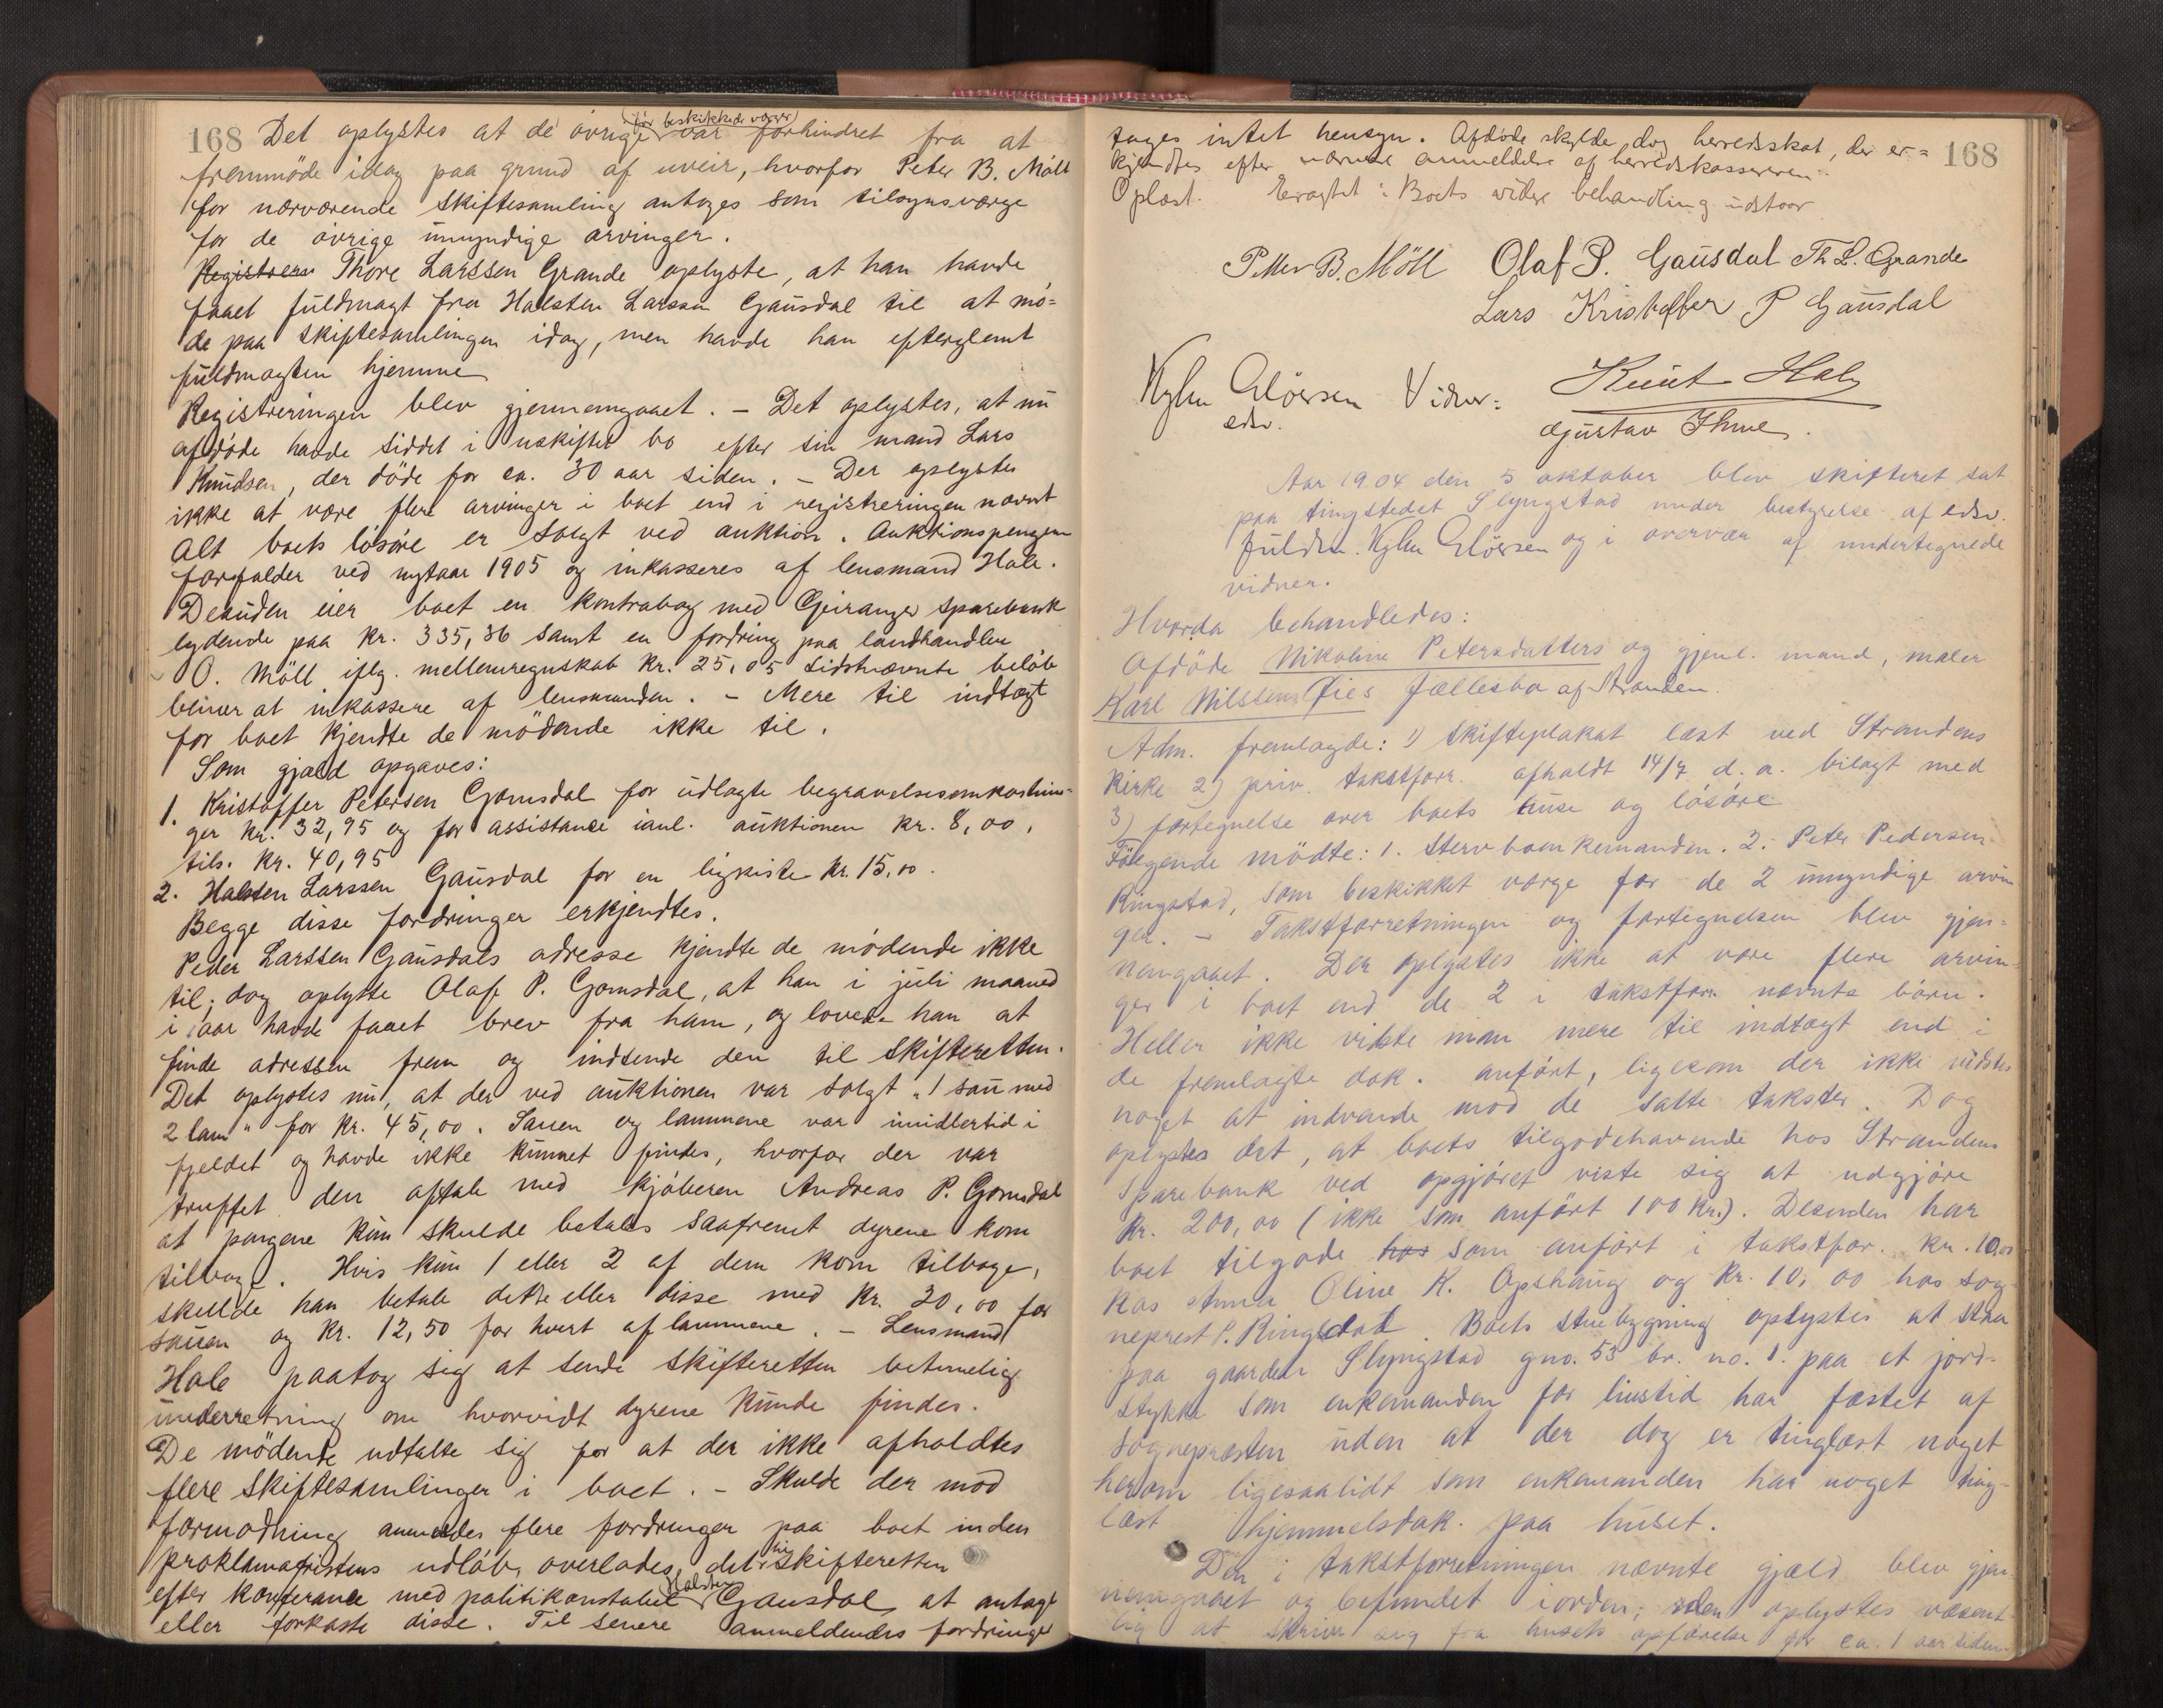 168
Det oplystes at de övrige (før beskikkede værger) var forhindret fra at
fremmöde idag paa grund af uveir, hvorfor Peter B. Möll
for nærværende skiftesamling antoges som tilsynsværge
for de övrige umyndige arvinger.
Registreri Thore Larssen Grande oplyste, at han havde
faaet fuldmagt fra Halsten Larssen Gausdal til at mö=
de paa skiftesamlingen idag, men havde han efterglemt
fuldmagten hjemme
Registreringen blev gjennemgaaet. – Det oplystes, at nu
afdöde havde siddet i uskiftet bo efter sin mand Lars
Knudsen, der döde for ca. 30 aar siden. – Der oplystes
ikke at være flere arvinger i boet end i registreringen nævnt
Alt boets lösöre er solgt ved auktion. Auktionspengene
forfalder ved nytaar 1905 og inkasseres af lensmand Hole.
Desuden eier boet en kontrabog med Geiranger sparebank
lydende paa kr. 335,36 samt en fordring paa landhandler
O. Möll iflg. mellemregnskab kr. 25,05 sidstnævnte belöb
bliver at inkassere af lensmanden. – Mere til indtægt
for boet kjendte de mödende ikke til.
Som gjæld opgaves:
1. Kristoffer Petersen Gomsdal for udlagte begravelsesomkostnin=
ger kr. 32,95 og for assistance ianl. auktionen kr. 8,00,
tils. kr. 40,95
2. Halsten Larssen Gausdal for en ligkiste kr. 15,00.
Begge disse fordringer erkjendtes.
Peder Larssen Gausdals adresse kjendte de mödende ikke
til; dog oplyste Olaf P. Gomsdal, at han i juli maaned
i aar havde faaet brev fra ham, og lovede han at
finde adressen frem og indsende den til skifteretten.
Det oplystes nu, at der ved auktionen var solgt "1 sau med
2 lam" for kr. 45,00. Sauen og lammene var imidlertid i
fjeldet og havde ikke kunnet findes, hvorfor der var
truffet den aftale med kjöberen Andreas P. Gomsdal
at pengene kun skulde betales saafremt dyrene kom
tilbage. Hvis kun 1 eller 2 af dem kom tilbage,
skulde han betale dette eller disse med kr. 20,00 for
sauen og kr. 12,50 for hvert af lammene. – Lensmand
Hole paatog sig at sende skifteretten betimelig
underretning om hvorvidt dyrene kunde findes.
De mödende udtalte sig for at der ikke afholdtes
flere skiftesamlinger i boet. – Skulde der mod
formodning anmeldes flere fordringer paa boet inden
proklamafristens udløb, overlades det til skifteretten
efter konferance med politikonstabel Halsten Gausdal at antage
eller forkaste disse. Til senere anmeldendes fordringer
168
tages intet hensyn. Afdöde skylde dog herredsskat, der er=
kjendtes efter nærmere anmeldelse af herredskassereren.
Oplæst. Eragtet: Boets videre behandling udstaar
Petter B. Möll Olaf P. Gausdal Th L. Grande
Lars Kristoffer P Gausdal
Glöersen Vidner: Knut Hole
edsv. Gustav Ihme.
Aar 1904 den 5 oktober blev skifteret sat
paa tingstedet Slyngstad under bestyrelse af edsv.
fuldm. Glöersen og i overvær af undertegnede
vidner.
Hvorda behandledes:
Afdöde Nikoline Petersdatters og gjenl. mand, maler
Karl Nilssens Øies fællesbo af Stranden.
Adm. fremlagde: 1) skifteplakat læst ved Strandens
kirke 2) priv. takstforr. afholdt 14/7 d. a. bilagt med
3) fortegnelse over boets huse og lösöre
Fölgende mödte: 1. Stervboenkemanden. 2. Peter Pedersen
Ringstad, som beskikket værge for de 2 umyndige arvin
ger. – Takstforretningen og fortegnelsen blev gjen=
nemgaaet. Der oplystes ikke at være flere arvin=
ger i boet end de 2 i takstforr. nævnte börn.
Heller ikke vidste man mere til indtægt end i
de fremlagte dok. anfört, ligesom der ikke vidstes
noget at indvende mod de satte takster. Dog
oplystes det, at boets tilgodehavende hos Strandens
Sparebank ved opgjöret viste sig at udgjöre
kr. 200,00 (ikke som anfört 100 kr.). Desuden har
boet tilgode hos som anfört i takstfor. kr. 10,00
hos Anna Oline K. Opshaug og kr. 10,00 hos sog
neprest P. Ringdal. Boets stuebygning oplystes at staa
paa gaarden Slyngstad gno. 53 br. no. 1. paa et jord-
stykke som enkemanden for livstid har fæstet af
sognepræsten uden at der dog er tinglæst noget
herom ligesaalidt som enkemanden har noget ting-
læst hjemmelsdok. paa huset.
Den i takstforretningen nævnte gjæld blev gjen
nemgaaet og befundet iorden; den oplystes væsent
lig at skrive sig fra husets opförelse for ca. 1 aar siden.